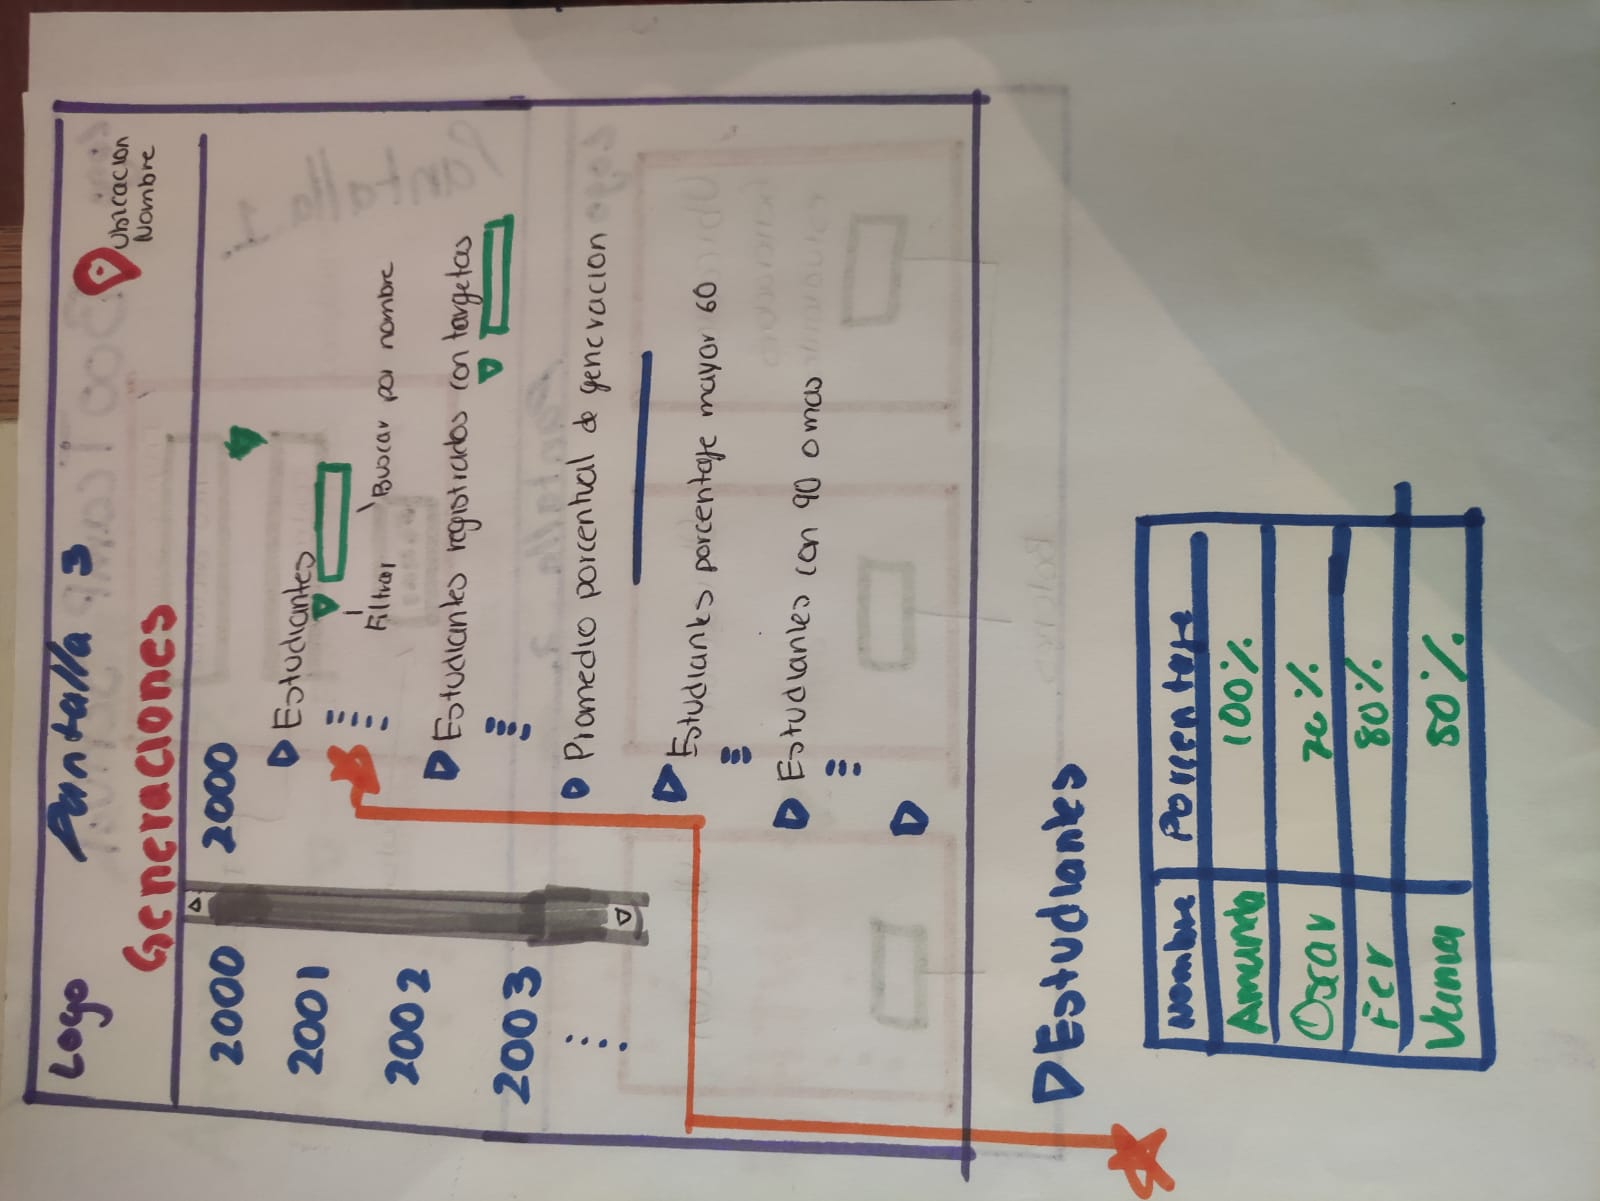 Logo Pantalla 3
Ubicacion
Nombre
Generaciones
2000
2001
2002
2003
2000
Estudiantes
Filtrar
Buscar por nombre
Estudiantes registrados con targetas
Promedio porcentual de generacion
Estudiantes porcentaje mayor 60
Estudiantes con 90 o mas
Estudiantes
Nombre Porcentaje
Amanda 100%
Oscar 70%
Fer 80%
Vania 50%